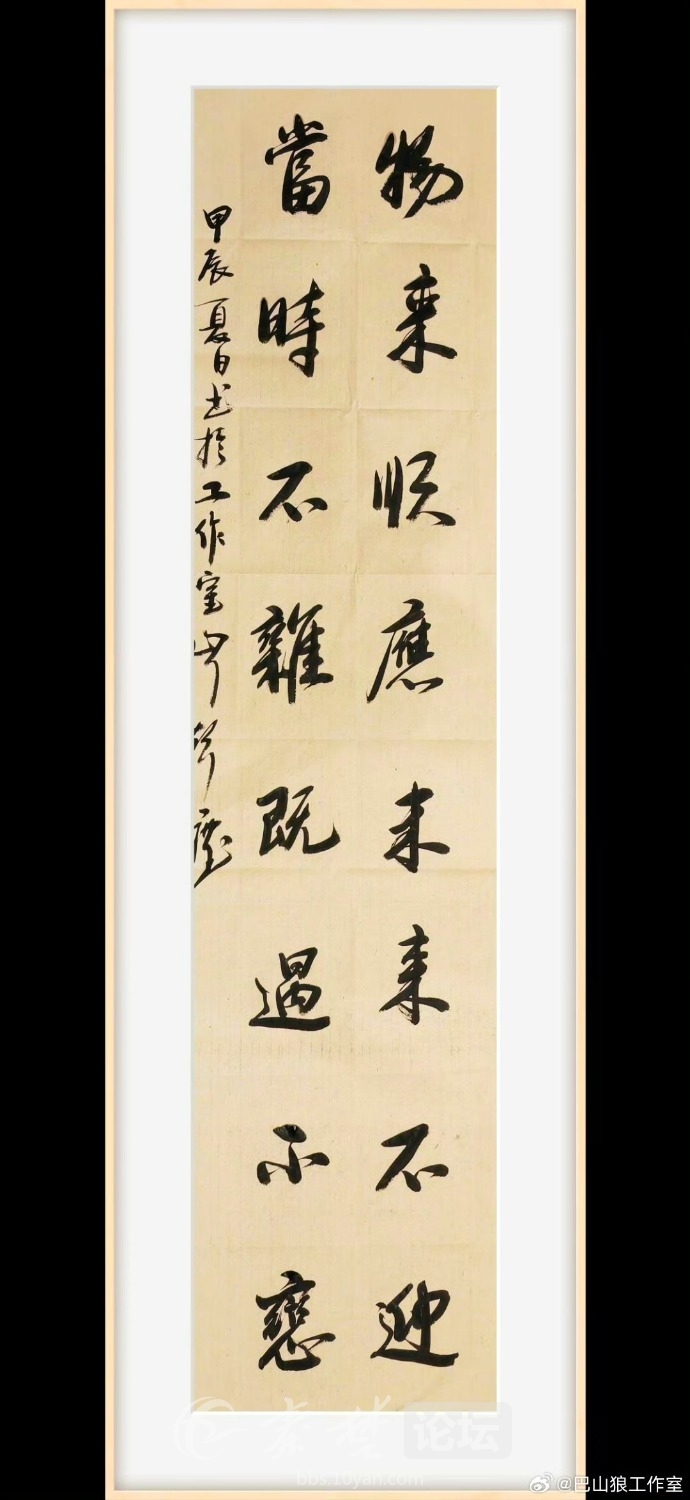 物来順應未来不迎
當時不雜既過不戀
甲辰夏日书於工作室
秦楚论坛
bbs.10yan.com
@巴山狼工作室